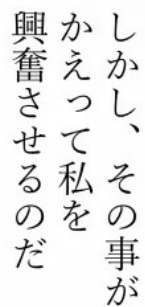 しかし、その事が
かえって私を
興奮させるのだ